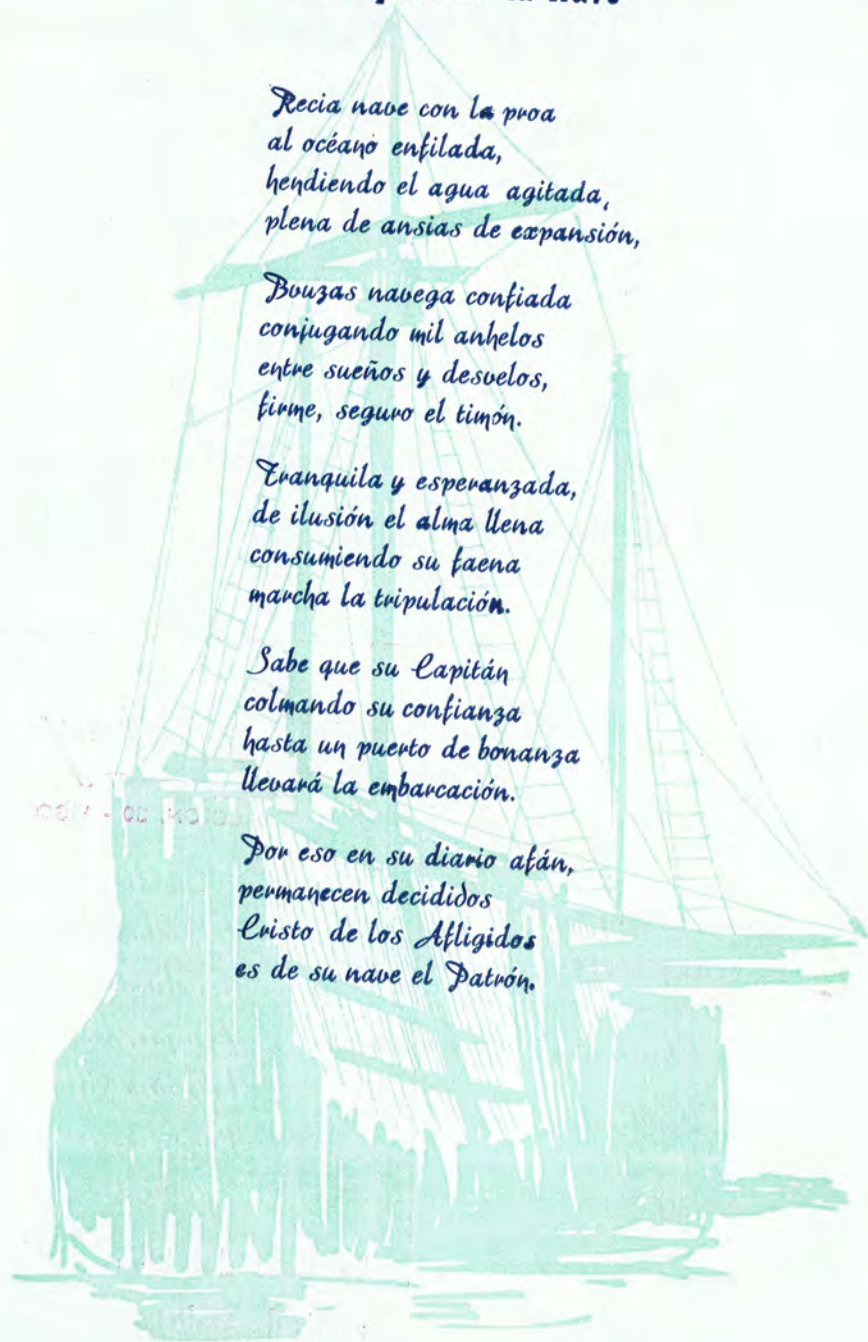 Recia nave con la proa
al océano enfilada,
hendiendo el agua agitada,
plena de ansias de expansión,
Bouzas navega confiada
conjugando mil anhelos
entre sueños y desvelos,
firme, seguro el timón.
Tranquila y esperanzada,
de ilusión el alma llena
consumiendo su faena
marcha la tripulación.
Sabe que su Capitán
colmando su confianza
hasta un puerto de bonanza
llevará la embarcación.
Por eso en su diario afán,
permanecen decididos
Cristo de los Afligidos
es de su nave el Patrón.